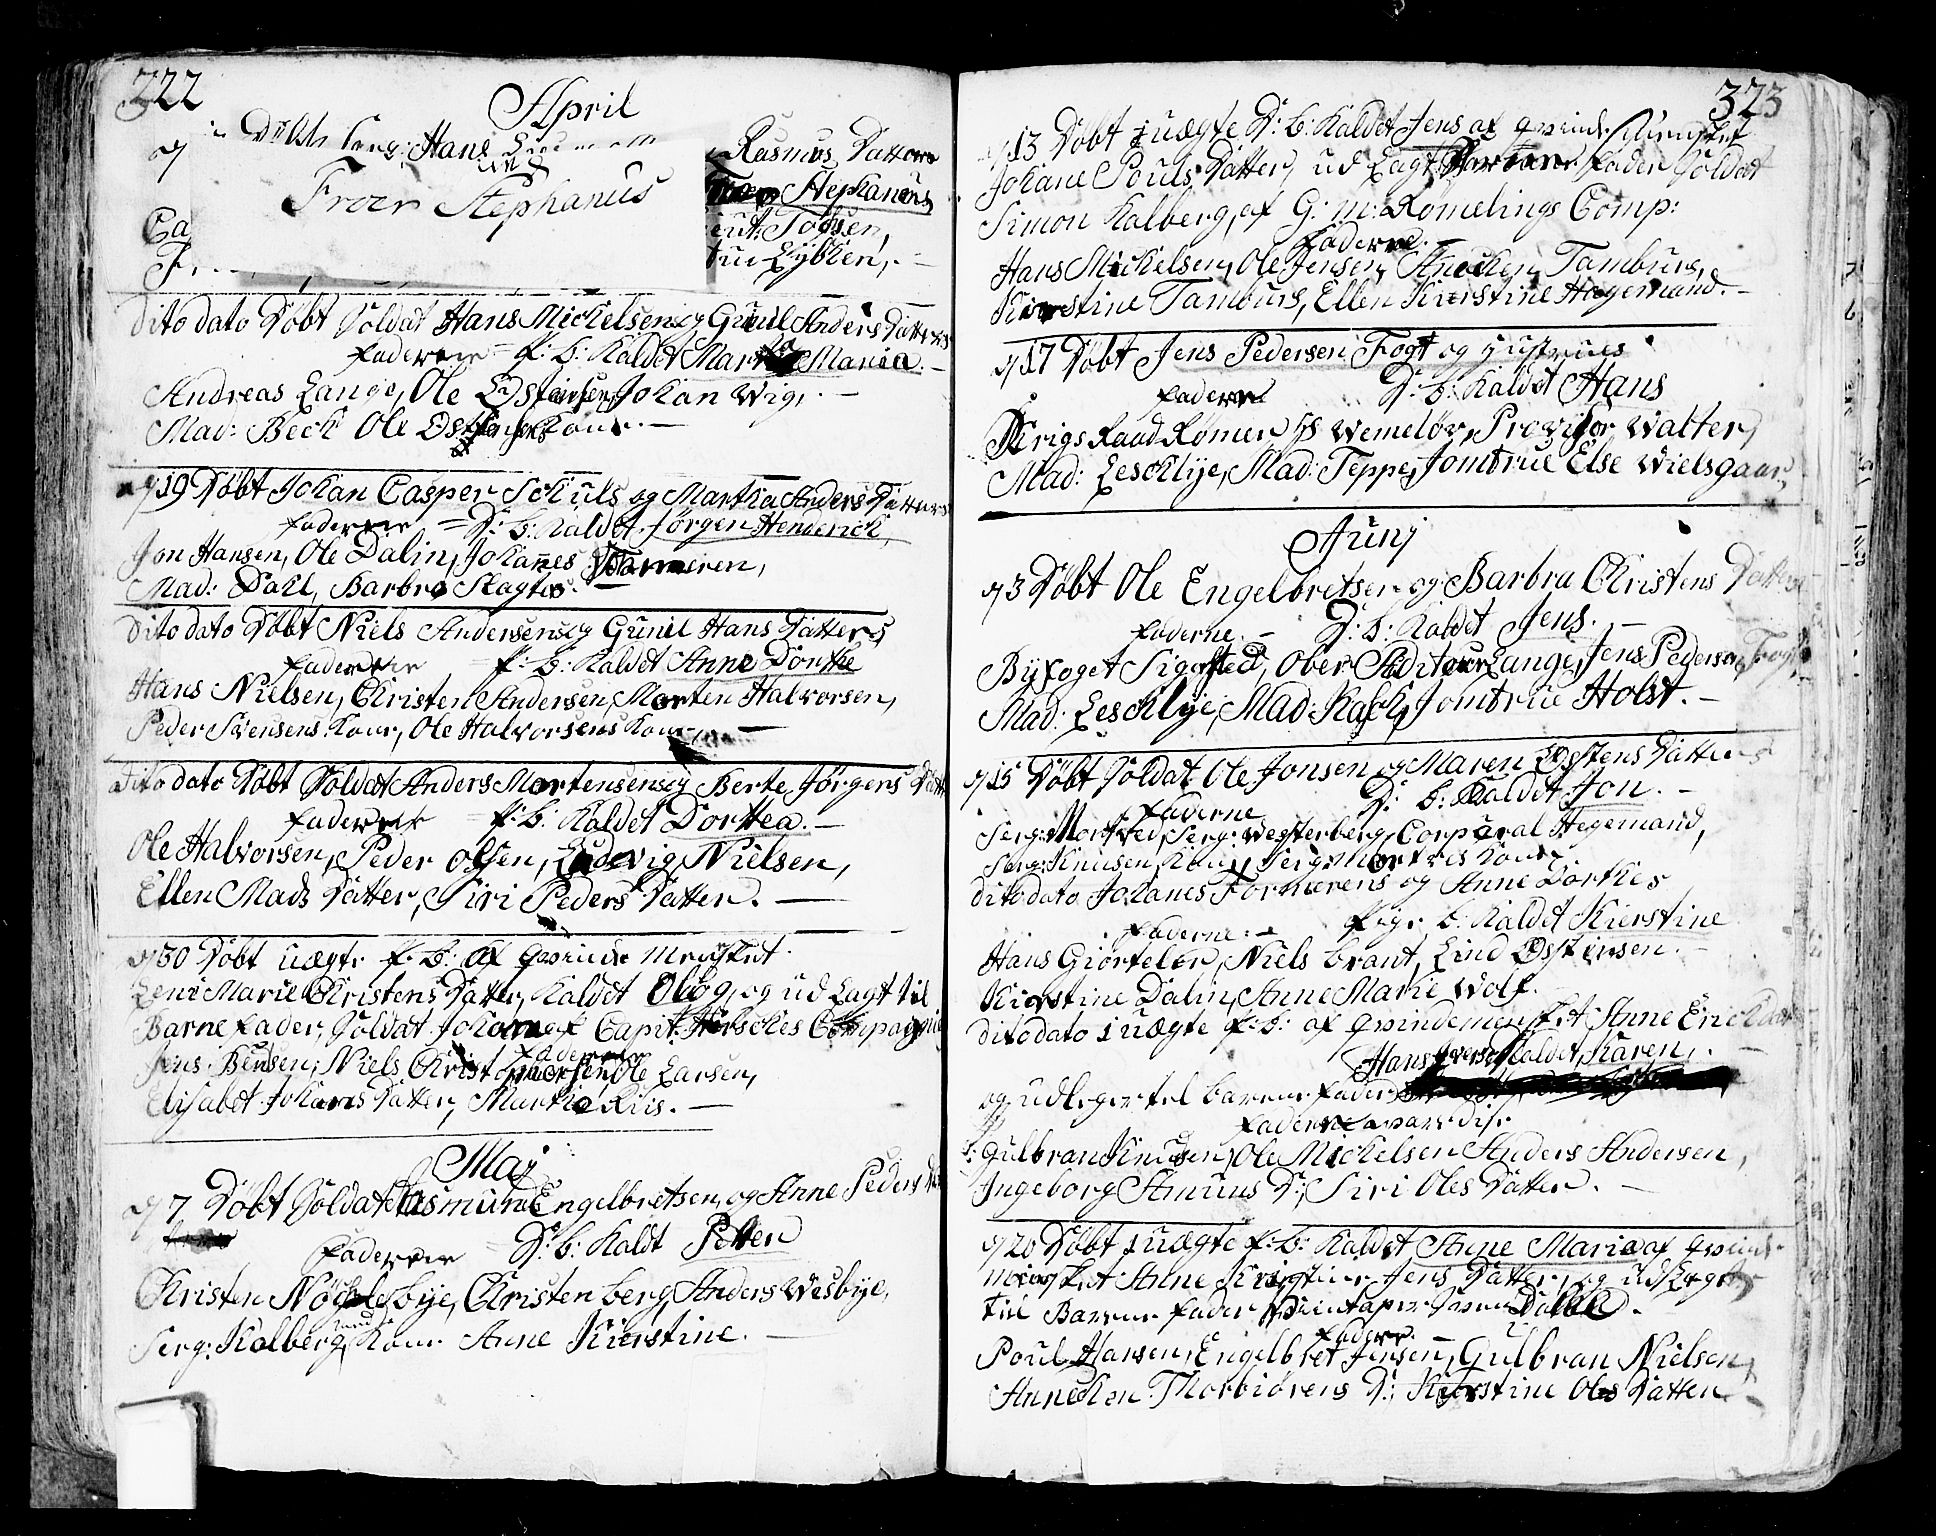 322
April
Døbt Serg: Hans Rasmus Datters
Froer Stephanus
Stephanus
Lieut: Todsen,
Lybken,
Dito dato Døbt Soldat Hans Mickelsen og Gunil Anders Datters
Faderne = P: b: Kaldet Maria
Andreas Lange, Ole Østensen, Johan Wig,
Mad: Beck Ole Kone.
d 19 Døbt Johan Casper Schuls og Martha Anders Datters
Fadderne = D: b: Kaldet Jørgen Henderick,
Jon Hansen, Ole Dalin, Johanes
Mad: Dahl, Barbro Slagters.
Dito dato Døbt Niels Andersens og Gunil Hans Datters
Fadderne P: b: Kaldet Anne Dorthe
Hans Nielsen, Christen Andersen, Morten Halvorsen,
Peder Svensens Kone, Ole Halvorsens Kone,
Dito dato Døbt Soldat Anders Mortensens og Berte Jørgens Datt
Fadderne P: b: Kaldet Dorthea.
Ole Halvorsen, Peder Olsen, Ludevig Nielsen,
Ellen Mads Datter, Siri Peders Datter.
d 30 Døbt uægte P: b: af Qvinde Mennisket
Leni Marie Christens Datter, Kaldet Olog, og ud Lagt til
Barne Fader, Soldat Johan af Capit: Herschес Compagnie
Fadderne
Jens Bensen, Niels Christophersen, Ole Larsen,
Elisabet Johans Datter, Marthe Riis.
Maj
d 7 Døbt Soldat Rasmus Engelbretsen og Anne Peders D
Fadderne = D: b: Kaldt Petter
Christen Nøchlebye, Christen Berg, Anders Wesbye,
Serg: Kalberg Kone Anne Kierstine.
323
d 13 Døbt 1 uægte D: b: Kaldet Jens af Qvinde Mennisket
Johane Pouls Datter, ud Lagt Barne Fader Soldat
Simon Kalberg, af G: m: Romelings Comp:
Faderne.
Hans Mickelsen, Ole Jensen, Anecken Tamburs,
Kierstine Tamburs, Ellen Kierstine Hegemand.
d 17 Døbt Jens Pedersen Fogt og Hustrues
Faderne D: b: Kaldet Hans
Krigs Raad Rømer, Hs Wemeløv, Provisor Walter,
Mad: Leschlye, Mad: Teppe, Jomfrue Else Wielsgaar
Junj
d 3 Døbt Ole Engelbretsen og Barbra Christens Datters
Faderne. D: b: Kaldet Jens.
Byfoget Sigested, Ober Auditeur Lange, Jens Pedersen Fogt,
Mad: Leschlye, Mad: Rasch, Jomfrue Holst.
d 15 Døbt Soldat Ole Jonsen og Maren Østens Datters
Faderne D: b: Kaldet Jon.
Serg: Morsted, Serg: Westerberg, Corpural Hegemand,
Serg: Knusen Kone, Serg: Kone
Dito dato Johanes Formerens og Anne Dorthes
Faderne Pige b: Kaldet Kierstine
Hans Giørteler, Niels Brant, Lind Østensen.
Kierstine Dalin, Anne Marie Wolf.
Dito dato 1 uægte P: b: af Qvindemensket Anne Erick Datter
Hans Iversen Kaldet, Karen,
og udlegger til Barne Fader
Faderne vare disse
Gulbran Knudsen, Ole Mickelsen Anders Andersen,
Ingeborg Amuns D:, Siri Oles Datter.
d 20 Døbt 1 uægte P: b: Kaldet Anne Maria af Qvinde
mensket Anne Kirstine Jens Datter, og ud Lagt
til Barne Fader
Faderne.
Poul Hansen, Engelbret Jensen, Gulbran Nielsen,
Annechen Thorbiørens D:, Kierstine Oles Datter